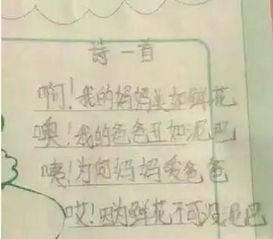 詩一首
啊!我的妈妈美如鲜花
噢!我的爸爸丑如泥巴
咦!为何妈妈爱爸爸
哎!因为鲜花不可没泥巴